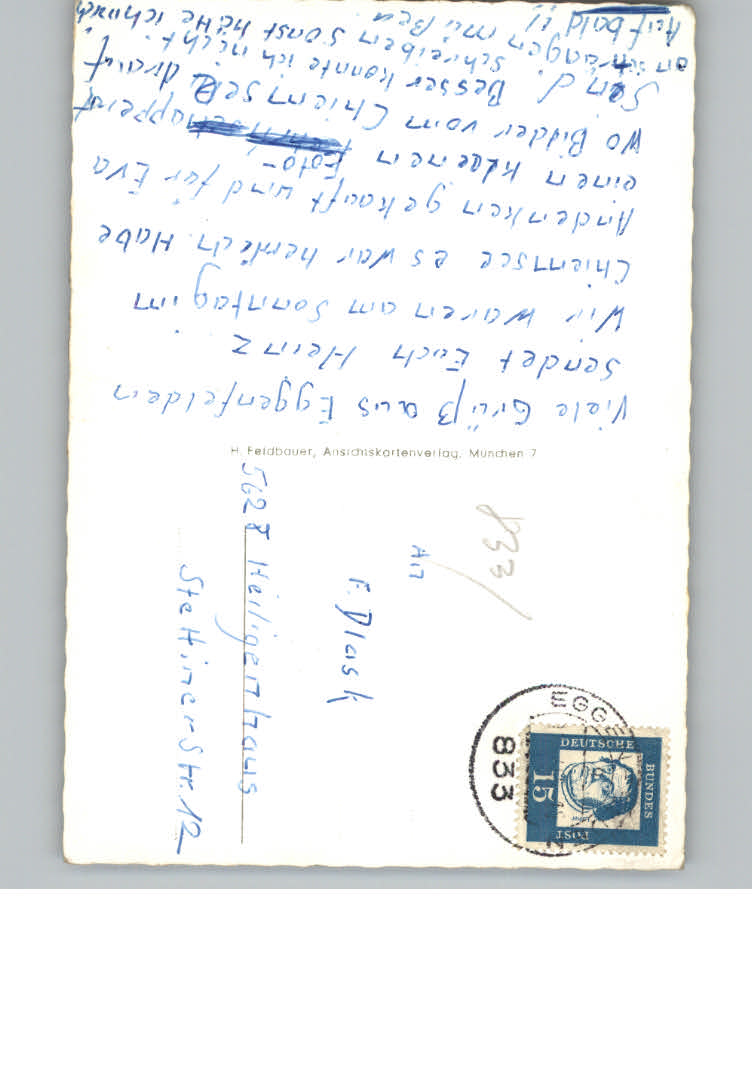 Viele Grüß aus Eggenfelden
sendet Euch Heinz
Wir waren am Sonntag im
Chiemsee es war herlich. Habe
Andenken gekauft und für Eva
einen kleenen Foto-
Wo Bilder vom Chiemsee drauf
sind. Besser konnte ich nicht
schreiben sonst hätte ich mich
an müßen
Aufbald
H. Feldbauer, Ansichtskartenverlag, München 7
833
An
F. Dlask
5628 Heiligenhaus
Stettiner Str. 12
EGGE
833
DEUTSCHE
BUNDES
POST
15